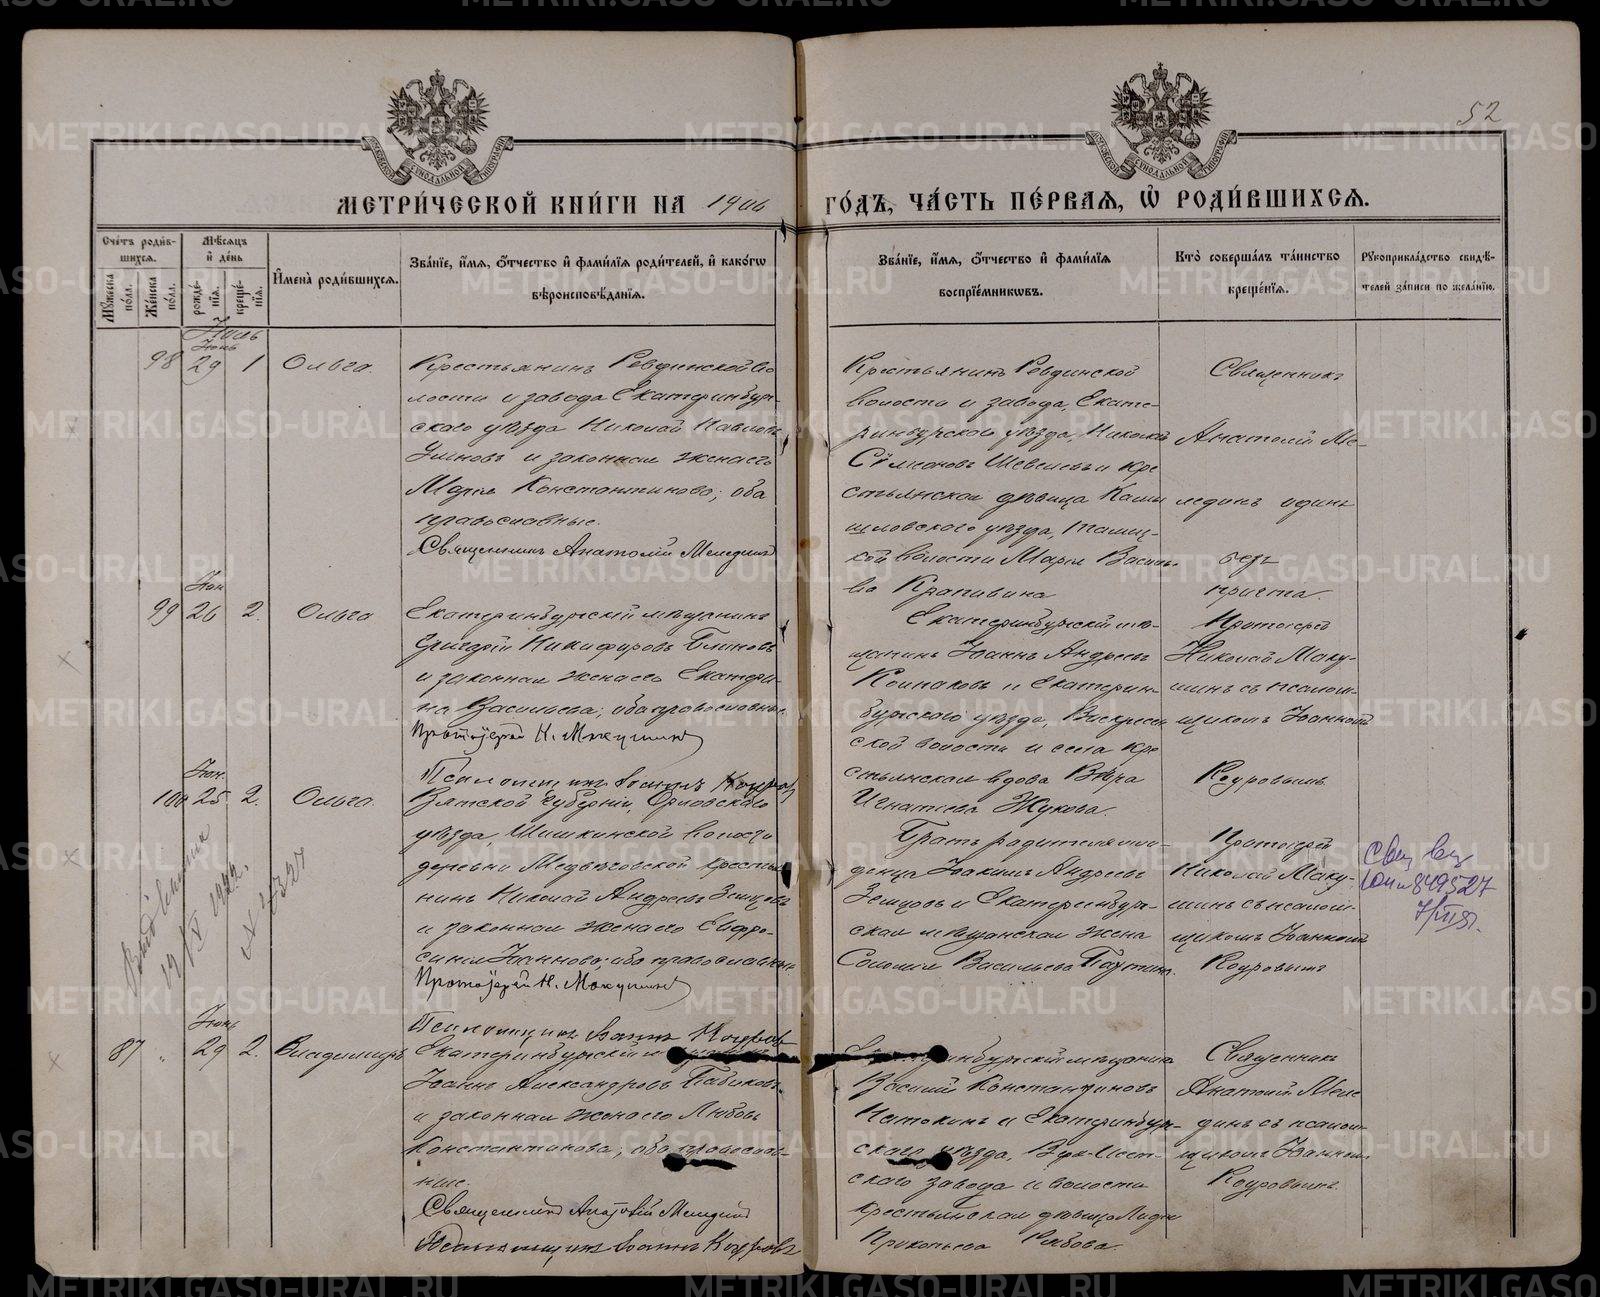 52
МЕТРИ́ЧЕСКОЙ КНИ́ГИ НА 1906 ГО́ДЪ, ЧА́СТЬ ПЕ́РВАѦ, Ѽ РОДИ́ВШИХСѦ.
Сче́тъ роди́в-
шихсѧ.
Мꙋ́жеска по́ла.
Же́нска по́ла.
Мѣ́сѧцъ
и҆ де́нь
рожде́-
нїѧ.
креще́-
нїѧ.
И҆мена̀ роди́вшихсѧ.
Зва́нїе, и҆́мѧ, ѻ҆́тчество и҆ фами́лїѧ роди́телей, и҆ како́гѡ
вѣроисповѣ́данїѧ.
Зва́нїе, и҆́мѧ, ѻ҆́тчество и҆ фами́лїѧ
воспрїе́мникѡвъ.
Кто̀ соверша́лъ та́инство
креще́нїѧ.
Рꙋкоприкла́дство свидѣ́-
телей за́писи по жела́нїю.
Іюль
Іюнь
98 29 1 Ольга.
Крестьянинъ Ревдинской во
лости и завода Екатеринбур-
скаго уѣзда Николай Павловъ
Умновъ и законная жена его
Марія Константинова; оба
православные.
Священникъ Анатолій Мелединъ
Крестьянинъ Ревдинской
волости и завода, Екате-
ринбургскаго уѣзда, Николай
Сѵмеоновъ Шевелевъ и кре
стьянская дѣвица Камы
шловскаго уѣзда, Талиц-
кой волости Марія Василье
ва Крапивина
Священникъ
Анатолій Ме-
лединъ одинъ
безъ
причта.
Іюн
99 26 2. Ольга
Екатеринбургскій мѣщанинъ
Григорій Никифоровъ Блиновъ
и законная жена его Екатери-
на Васильева; оба православные.
Протоіерей Н. Макушинъ
Псаломщикъ Іоаннъ Коуровъ
Екатеринбургскій мѣ-
щанинъ Іоаннъ Андреевъ
Колмаковъ и Екатерин-
бургскаго уѣзда, Воскресен
ской волости и села кре
стьянская вдова Вѣра
Игнатіева Жукова.
Протоіерей
Николай Маку-
шинъ съ псалом-
щикомъ Іоанномъ
Коуровымъ
Іюн.
100 25 2. Ольга.
Вятской губерніи, Орловскаго
уѣзда, Шишкинской волости
деревни Медвѣговской крестья
нинъ Николай Андреевъ Земцовъ
и законная жена его Евфро-
синія Іоаннова; оба православные
Протоіерей Н. Макушинъ
Псаломщикъ Іоаннъ Коуровъ
Братъ родителя мла-
денца Іоакимъ Андреевъ
Земцовъ и Екатеринбург-
ская мѣщанская жена
Соломія Васильева
Протоіерей
Николай Маку-
шинъ съ псалом-
щикомъ Іоанномъ
Коуровымъ
849527
№ 7327
Іюнь
87 " 29 2. Владимиръ
Екатеринбургскій
Іоаннъ Александровъ Бабиковъ
и законная жена его Любовь
Константинова; оба православ-
ные.
Священникъ Анатолій Меледин
Псаломщикъ Іоаннъ Коуровъ
Екатеринбургскій мѣщанинъ
Василій Константиновъ
Паткинъ и Екатеринбург-
скаго уѣзда, Верх-Исет-
скаго завода и волости
крестьянская дѣвица Лидія
Прокопьева Рябова.
Священникъ
Анатолій Меле
динъ съ псалом-
щикомъ Іоанном
Коуровымъ.
METRIKI.GASO-URAL.RU